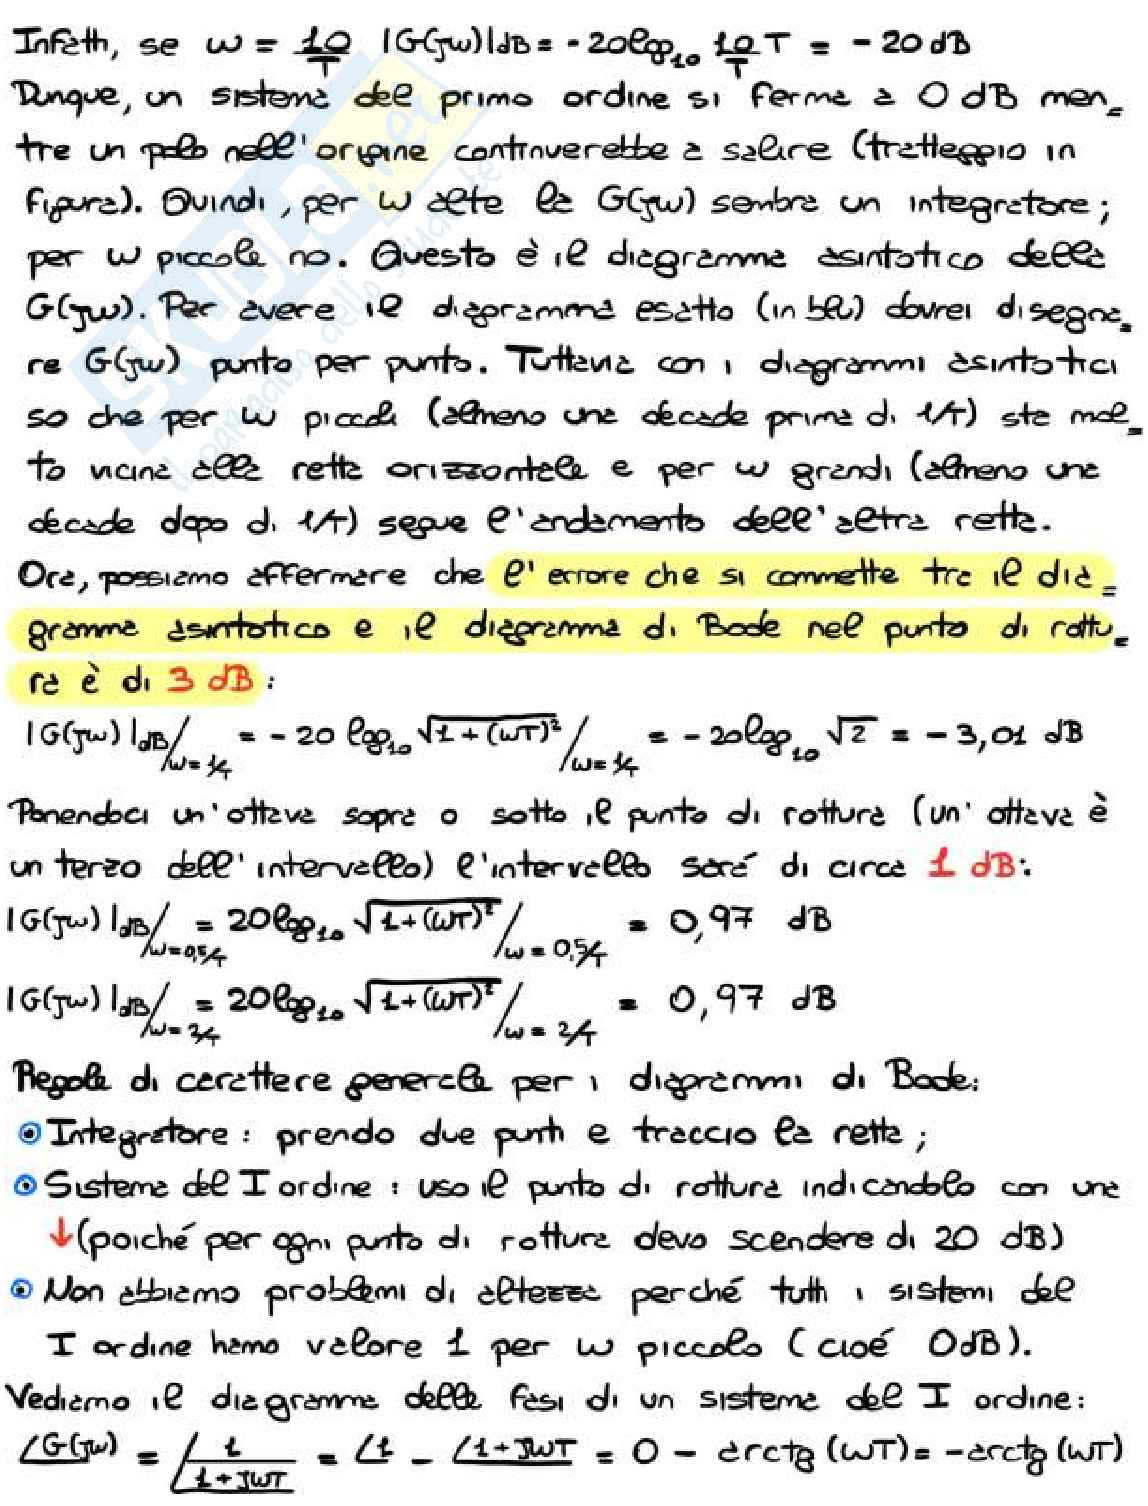 Infatti, se ω = 10/T |G(jω)|dB = -20log₁₀ 10/T T = -20 dB
Dunque, un sistema del primo ordine si ferma a 0 dB men=
tre un polo nell'origine continuerebbe a salire (tratteggio in
figura). Quindi, per ω alte la G(jω) sembra un integratore;
per ω piccole no. Questo è il diagramma asintotico della
G(jω). Per avere il diagramma esatto (in blu) dovrei disegna=
re G(jω) punto per punto. Tuttavia con i diagrammi asintotici
so che per ω piccoli (almeno una decade prima di 1/T) sta mol=
to vicina alla retta orizzontale e per ω grandi (almeno una
decade dopo di 1/T) segue l'andamento dell'altra retta.
Ora, possiamo affermare che l'errore che si commette tra il dia=
gramma asintotico e il diagramma di Bode nel punto di rottu=
ra è di 3 dB:
|G(jω)|dB/ω=1/T = -20 log₁₀ √1+(ωT)² /ω=1/T = -20log₁₀ √2 = -3,01 dB
Ponendoci un'ottava sopra o sotto il punto di rottura (un'ottava è
un terzo dell'intervallo) l'intervallo sará di circa 1 dB:
|G(jω)|dB/ω=0,5/T = 20log₁₀ √1+(ωT)² /ω=0,5/T = 0,97 dB
|G(jω)|dB/ω=2/T = 20log₁₀ √1+(ωT)² /ω=2/T = 0,97 dB
Regole di carattere generale per i diagrammi di Bode:
Integratore: prendo due punti e traccio la retta;
Sistema del I ordine: uso il punto di rottura indicandolo con una
↓(poiché per ogni punto di rottura devo scendere di 20 dB)
Non abbiamo problemi di altezza perché tutti i sistemi del
I ordine hanno valore 1 per ω piccolo (cioé 0dB).
Vediamo il diagramma delle fasi di un sistema del I ordine:
∠G(jω) = ∠1/1+jωT = ∠1 - ∠1+jωT = 0 - arctg(ωT) = -arctg(ωT)
SKUOLA.net
il paradiso dello studente